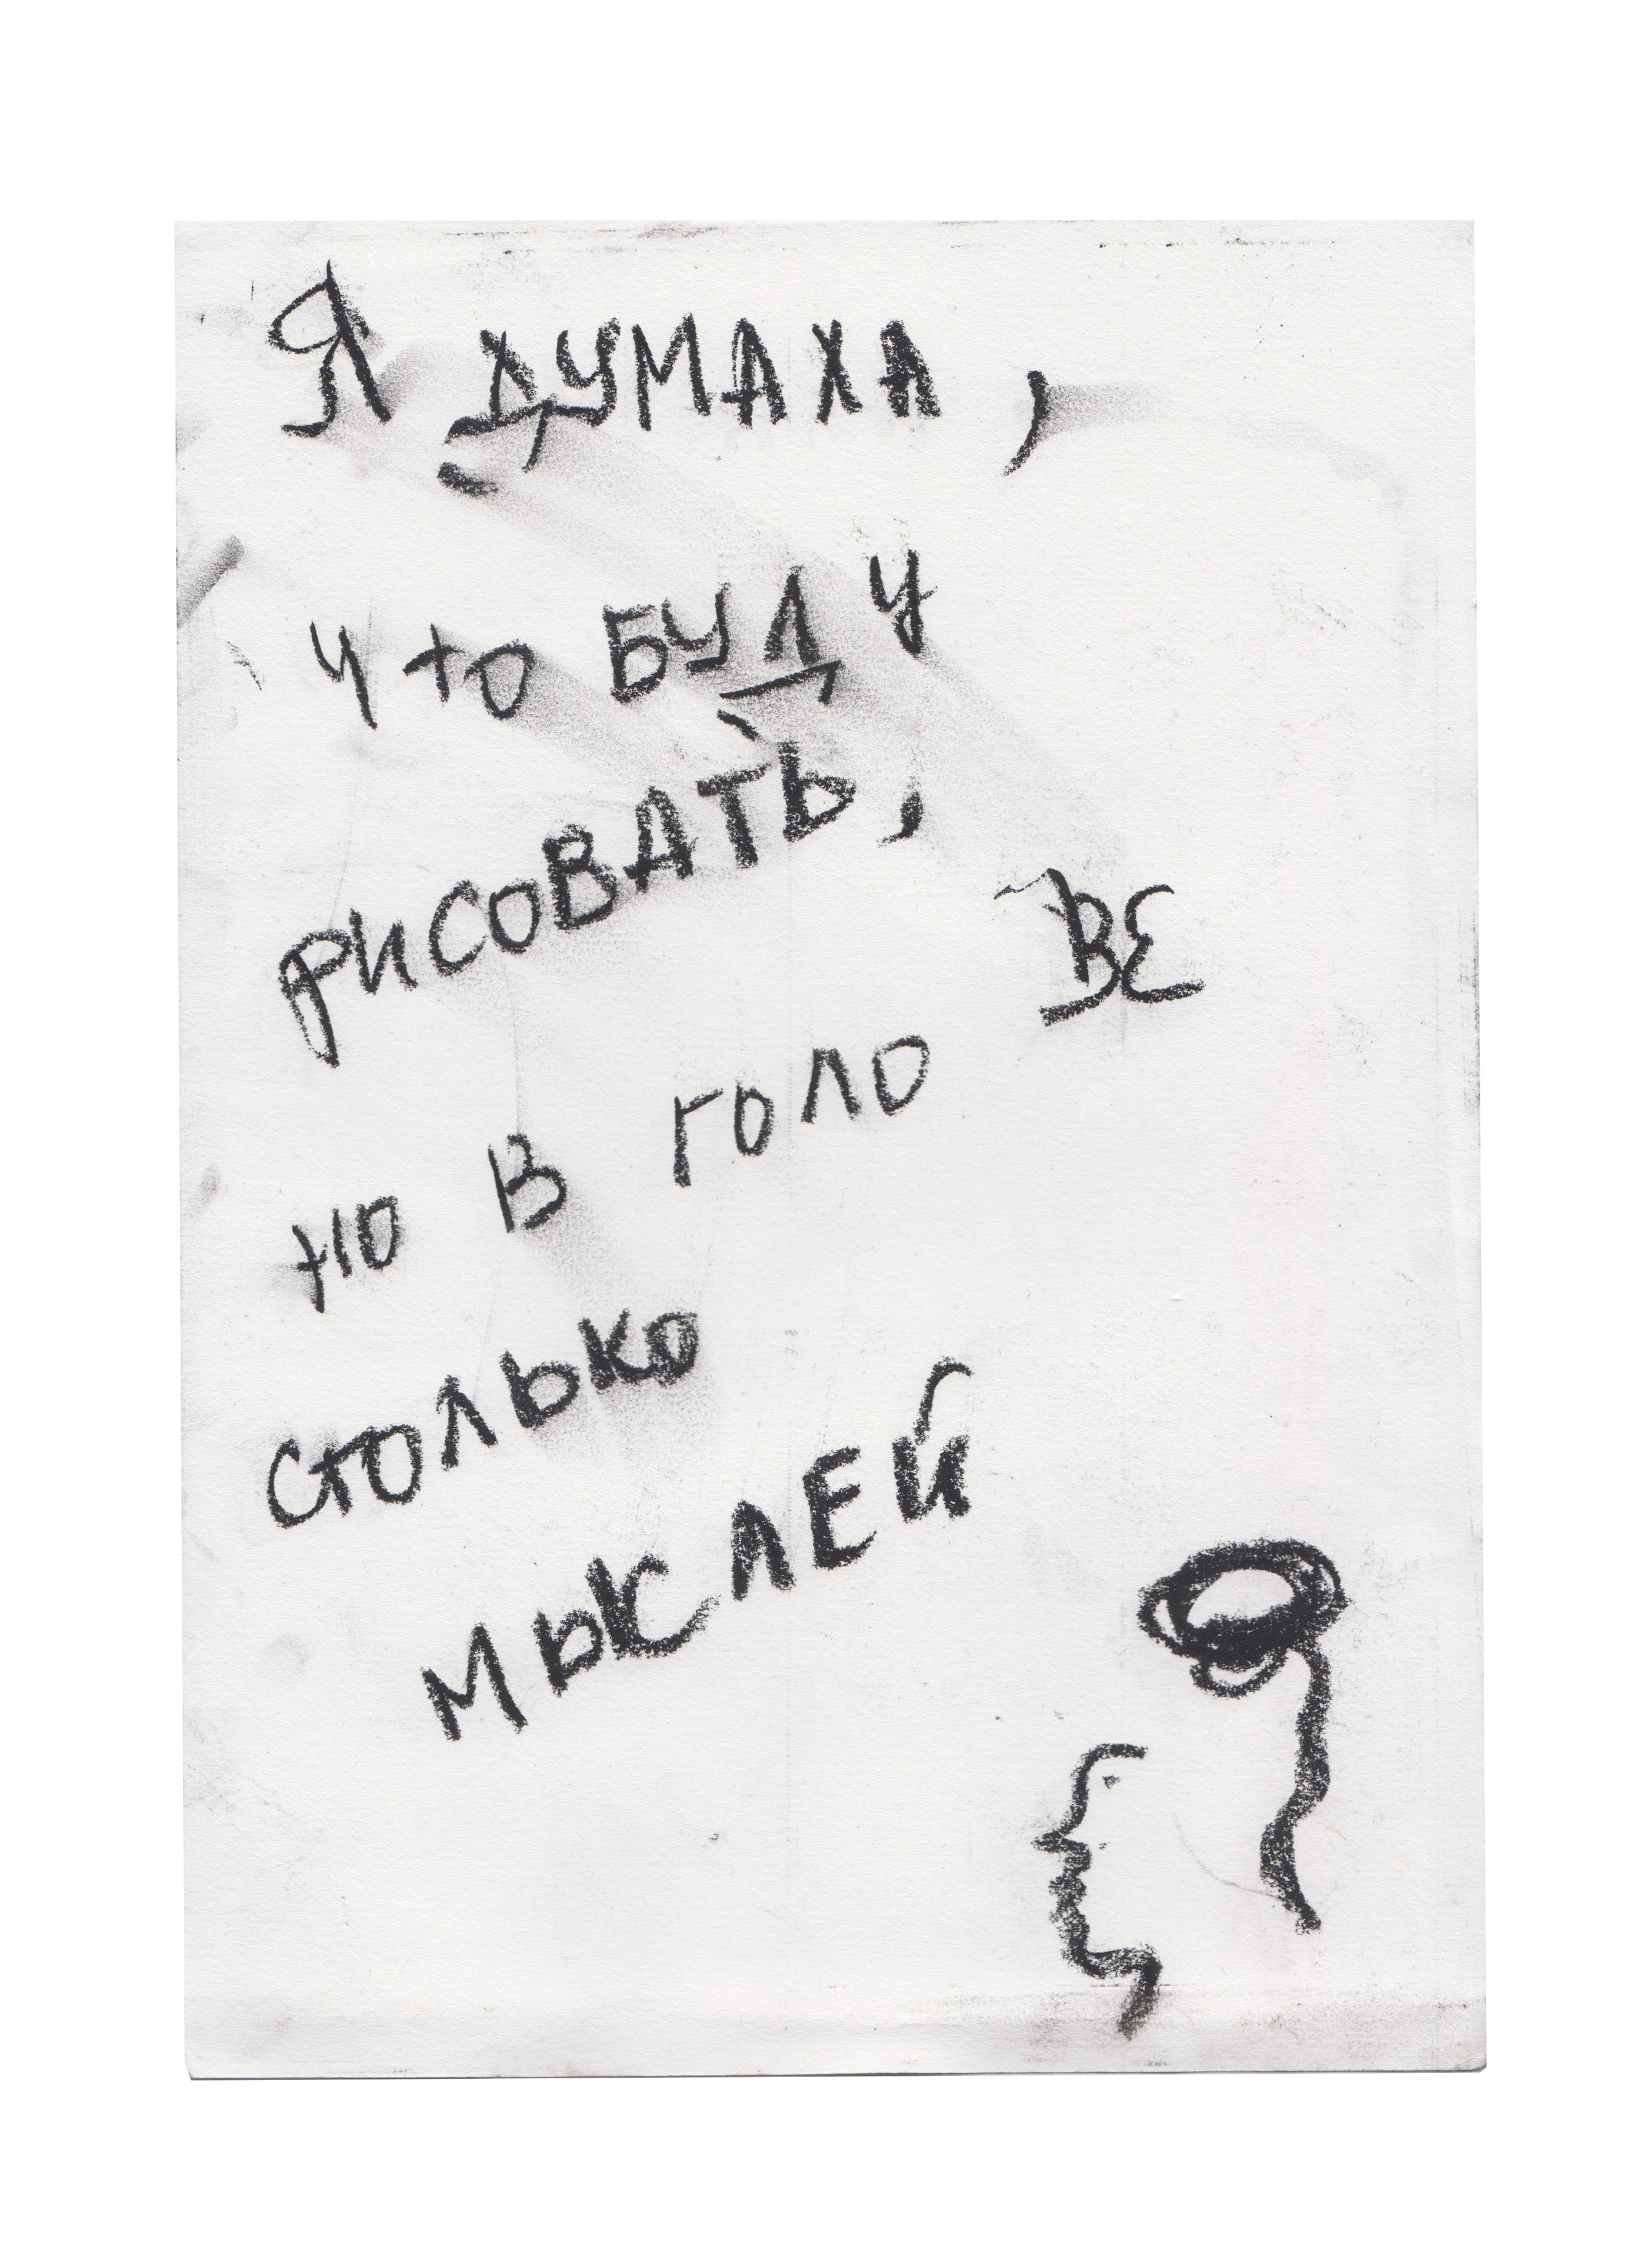 Я ДУМАХА,
что БУДУ
РИСОВАТЬ,
но В ГОЛОВЕ
СТОЛЬКО
МЫСЛЕЙ